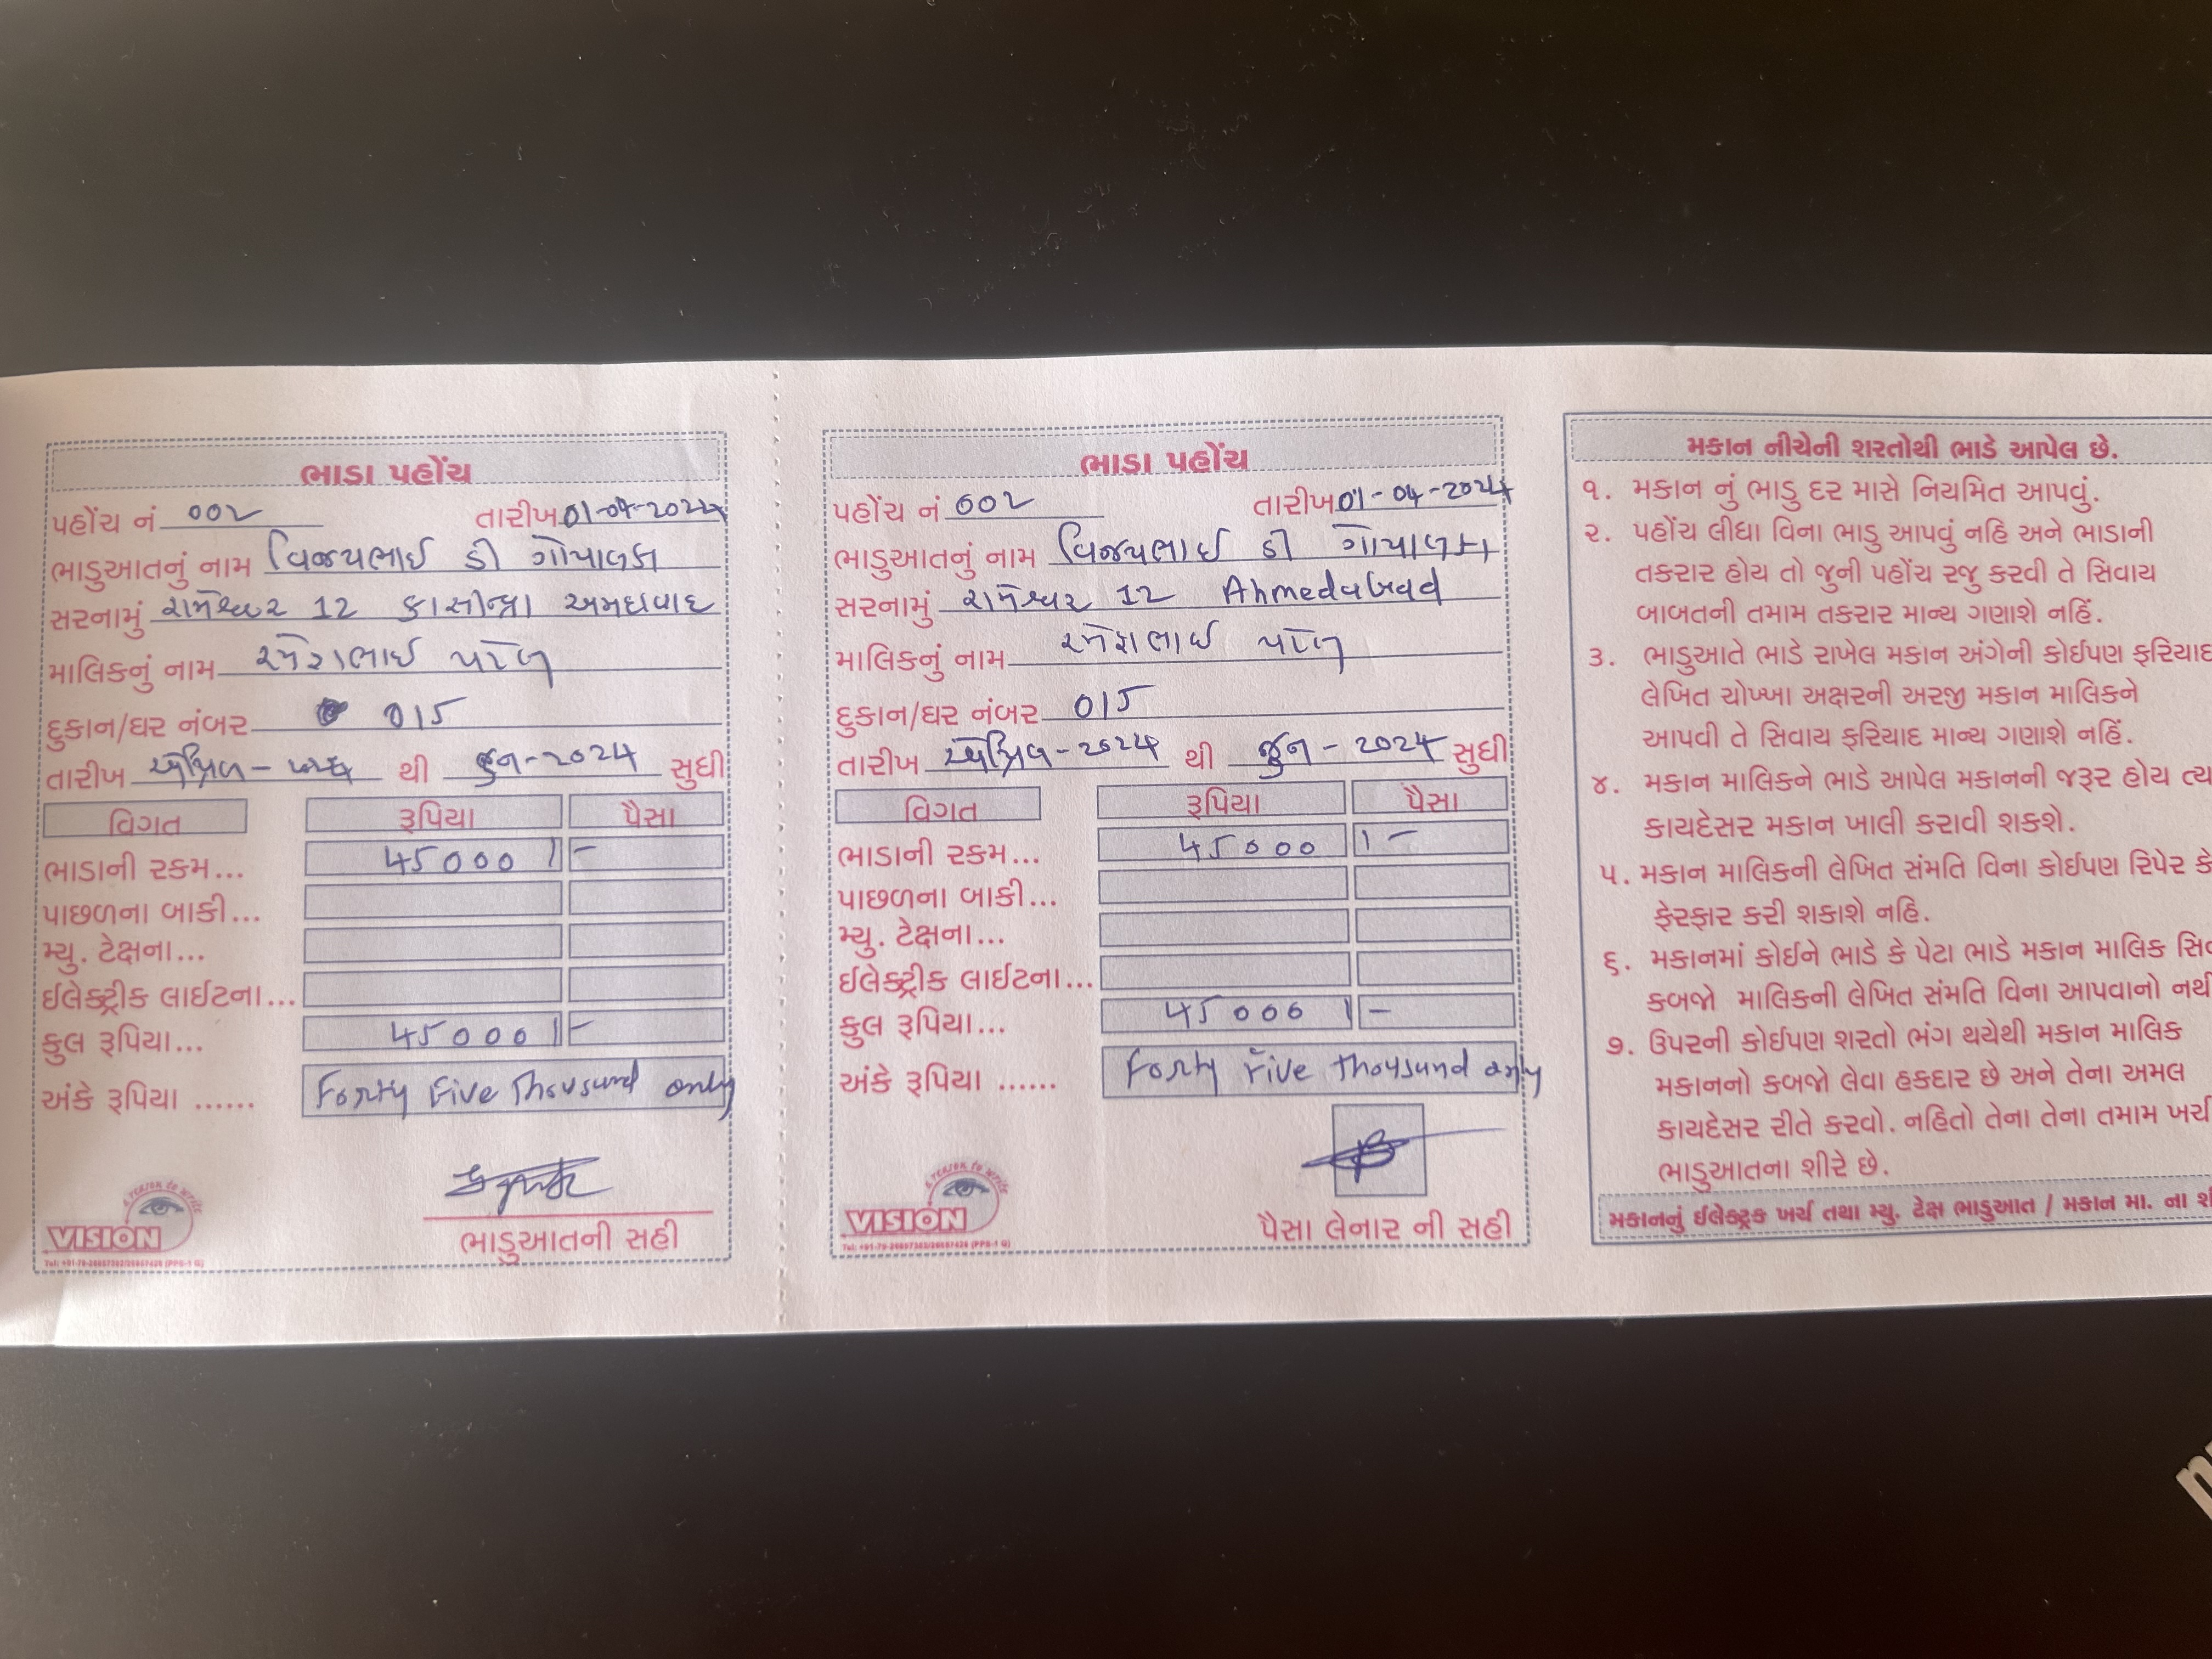 ભાડા પહોંચ
પહોંચ નં ૦૦૨ તારીખ ૦૧-૦૪-૨૦૨૪
ભાડુઆતનું નામ વિજયભાઈ ડી ગોપાલક
સરનામું રામેશ્વર 12 અમદાવાદ
માલિકનું નામ રમેશભાઈ પટેલ
દુકાન/ઘર નંબર 015
તારીખ એપ્રિલ-૨૦૨૪ થી જુન-૨૦૨૪ સુધી
વિગત રૂપિયા પૈસા
ભાડાની રકમ... 45000/-
પાછળના બાકી...
મ્યુ. ટેક્ષના...
ઈલેક્ટ્રીક લાઈટના...
કુલ રૂપિયા... 45000/-
અંકે રૂપિયા ...... Forty Five Thousund only
VISION
ભાડુઆતની સહી
ભાડા પહોંચ
પહોંચ નં ૦૦૨ તારીખ ૦૧-૦૪-૨૦૨૪
ભાડુઆતનું નામ વિજયભાઈ ડી ગોપાલક
સરનામું રામેશ્વર 12 Ahmedabad
માલિકનું નામ રમેશભાઈ પટેલ
દુકાન/ઘર નંબર 015
તારીખ એપ્રિલ-૨૦૨૪ થી જુન-૨૦૨૪ સુધી
વિગત રૂપિયા પૈસા
ભાડાની રકમ... 45000/-
પાછળના બાકી...
મ્યુ. ટેક્ષના...
ઈલેક્ટ્રીક લાઈટના...
કુલ રૂપિયા... 45000/-
અંકે રૂપિયા ...... Forty Five Thousund only
VISION
પૈસા લેનાર ની સહી
મકાન નીચેની શરતોથી ભાડે આપેલ છે.
૧. મકાન નું ભાડુ દર માસે નિયમિત આપવું.
૨. પહોંચ લીધા વિના ભાડુ આપવું નહિ અને ભાડાની
તકરાર હોય તો જુની પહોંચ રજુ કરવી તે સિવાય
બાબતની તમામ તકરાર માન્ય ગણાશે નહિં.
૩. ભાડુઆતે ભાડે રાખેલ મકાન અંગેની કોઈપણ ફરિયાદ
લેખિત ચોખ્ખા અક્ષરની અરજી મકાન માલિકને
આપવી તે સિવાય ફરિયાદ માન્ય ગણાશે નહિં.
૪. મકાન માલિકને ભાડે આપેલ મકાનની જરૂર હોય ત્ય
કાયદેસર મકાન ખાલી કરાવી શકશે.
૫. મકાન માલિકની લેખિત સંમતિ વિના કોઈપણ રિપેર કે
ફેરફાર કરી શકાશે નહિ.
૬. મકાનમાં કોઈને ભાડે કે પેટા ભાડે મકાન માલિક સિ
કબજો માલિકની લેખિત સંમતિ વિના આપવાનો નથી
૭. ઉપરની કોઈપણ શરતો ભંગ થયેથી મકાન માલિક
મકાનનો કબજો લેવા હકદાર છે અને તેના અમલ
કાયદેસર રીતે કરવો. નહિતો તેના તેના તમામ ખર્ચ
ભાડુઆતના શીરે છે.
મકાનનું ઈલેક્ટ્રીક ખર્ચ તથા મ્યુ. ટેક્ષ ભાડુઆત / મકાન મા. ના શી